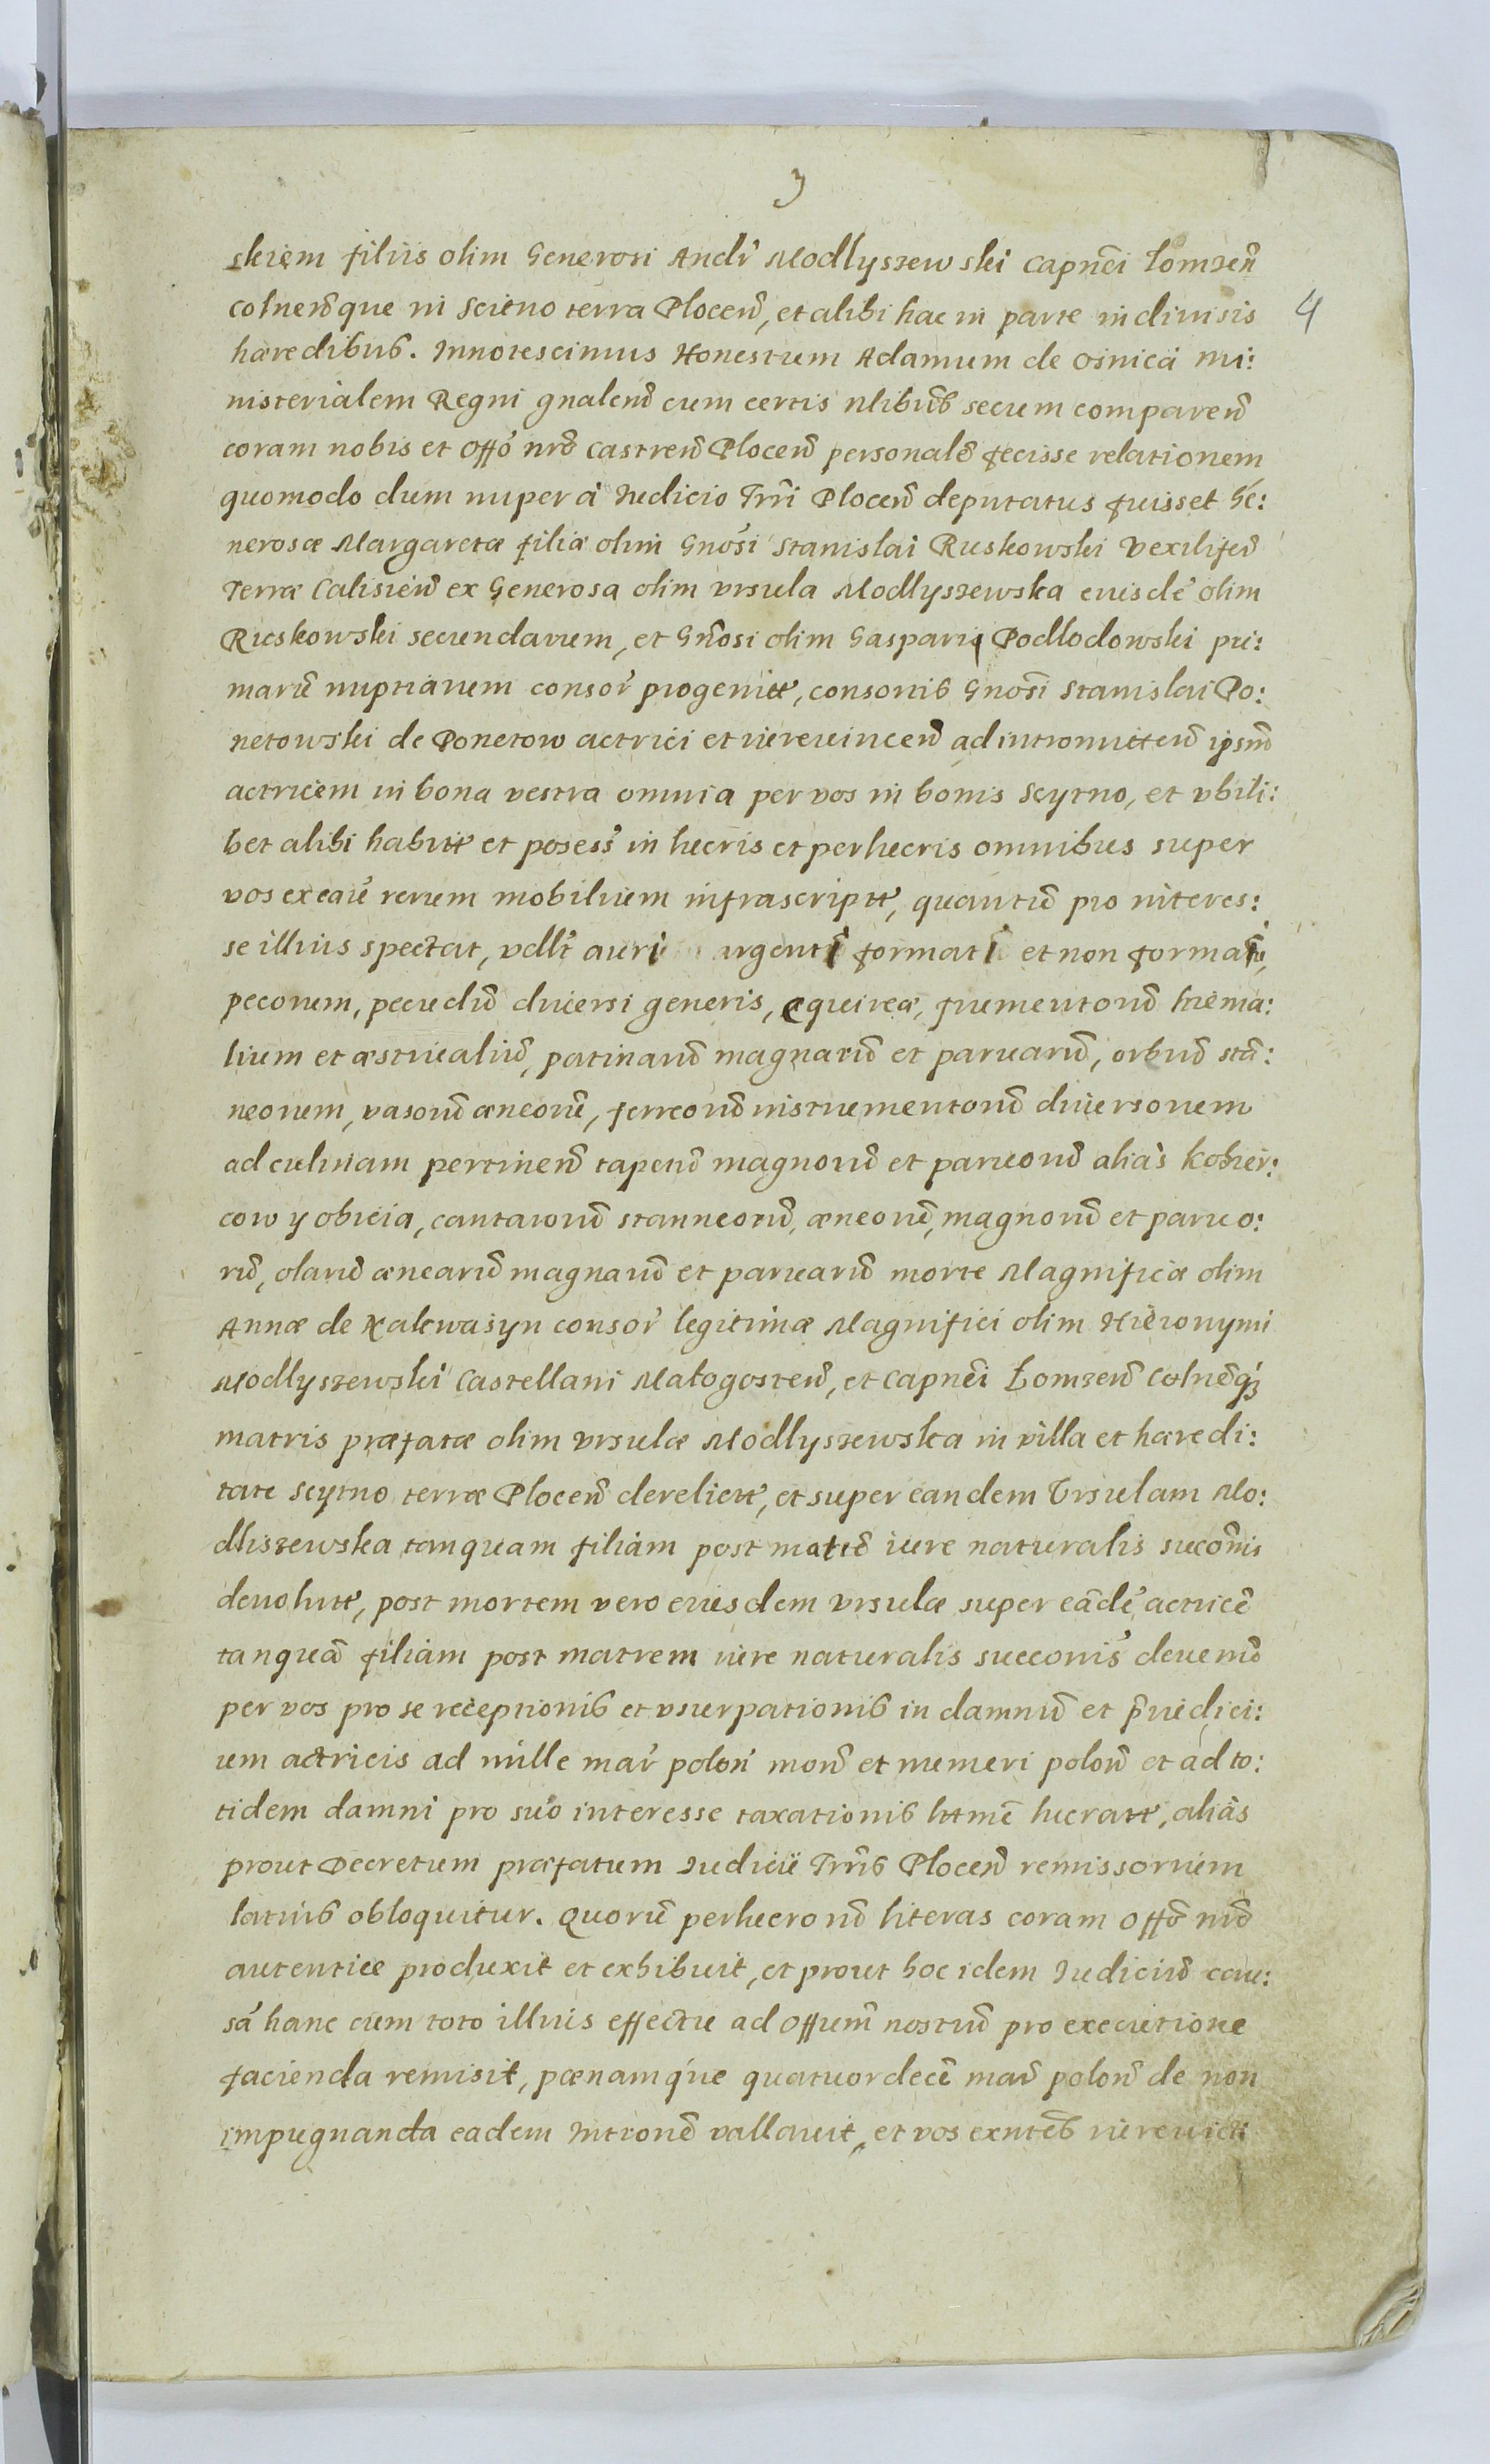 3
4
skiem filiis olim Generosi Andr̃ Modlyszewski capñei Lomzeñ
colneñque in Scitno terra Ploceñ, et alibi hac in parte indiuisis
hæredibus. Innotescimus Honestum Adamum de Osnica mi:
nisterialem Regni gnalem̃ cum certis nlibus̃ secum compareñ
coram nobis et Offõ nrõ castreñ Ploceñ personalẽ fecisse relationem
quomodo dum nuper à Iudicio Trri Ploceñ deputatus fuisset Ge:
nerosæ Margaretæ filiæ olim Gnosi Stanislai Ruskowski Vexiliferi
Terræ Calisieñ ex Generosa olim Vrsula Modlyszewska eiusdẽ olim
Ruskowski secundarum, et Gnosi olim Gasparis Podlodowski pri:
marũ nuptiarum consor̃ progenitæ, consortis Gnosi Stanislai Po:
netowski de Ponetow actrici et iureuinceñ ad intromitteñ ipsam̃
actricem in bona vestra omnia per vos in bonis Scytno, et vbili:
bet alibi habitt et possess̃ in lucris et perlucris omnibus super
vos ex eaũ rerum mobilium infrascriptt, quantũ pro interes:
se illius spectat, vdllt auri argenti formati et non formati,
pecorum, pecudũ diuersi generis, equireæ, frumentorũ hiema:
lium et æstiualiũ, patinarũ magnarũ et paruarũ, orbiũ stã:
neorum, vasorũ æneorũ, ferreorũ instrumentorũ diuersorum
ad culinam pertineñ tapetũ magnorũ et paruorũ aliàs kobier:
cow y obicia, cantarorũ stanneorũ, æneorũ, magnorũ et paruo:
rũ, olarũ ænearũ magnarũ et paruarũ morte Magnificæ olim
Annæ de Kalewasyn consor̃ legitimæ Magnifici olim Hieronymi
Modlyszewski Castellani Malogosteñ, et capñei Lomzeñ Colneñq̃
matris præfatæ olim Vrsulæ Modlyszewska in villa et hæredi:
tate Scytno terræ Ploceñ derelictt, et super eandem Vrsulam Mo:
dliszewska tanquam filiam post matrẽ iure naturalis succonis̃
deuolutt, post mortem vero eiusdem Vrsulæ super eãdẽ actricẽ
tanquã filiam post matrem iure naturalis succonis̃ deuenñ
per vos pro se receptionis et vsurpationis in damnũ et p̃iudici:
um actricis ad mille mar̃ poloñ moñ et numeri poloñ et ad to:
tidem damni pro suo interesse taxationis lttmẽ lucratt, aliàs
prout Decretum præfatum Iudicii Trris Ploceñ remissorium
latius obloquitur. Quorũ perlucrorũ literas coram Offõ nrõ
autentice produxit et exhibuit, et prout hoc idem Iudiciũ cau:
sã hanc cum toto illius effectu ad Offium̃ nostrũ pro executione
facienda remisit, pœnamque quatuordecẽ mar̃ poloñ de non
impugnanda eadem Intronẽ vallauit, et vos exñtes iureuicti